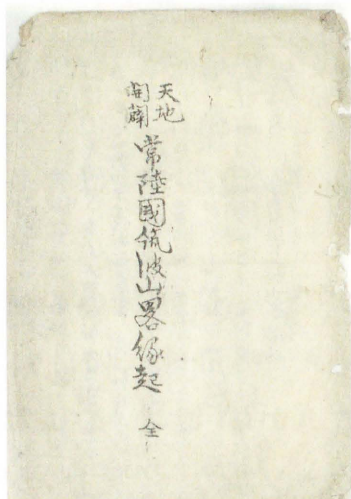 天地
開闢
常陸國筑波山畧縁起 全